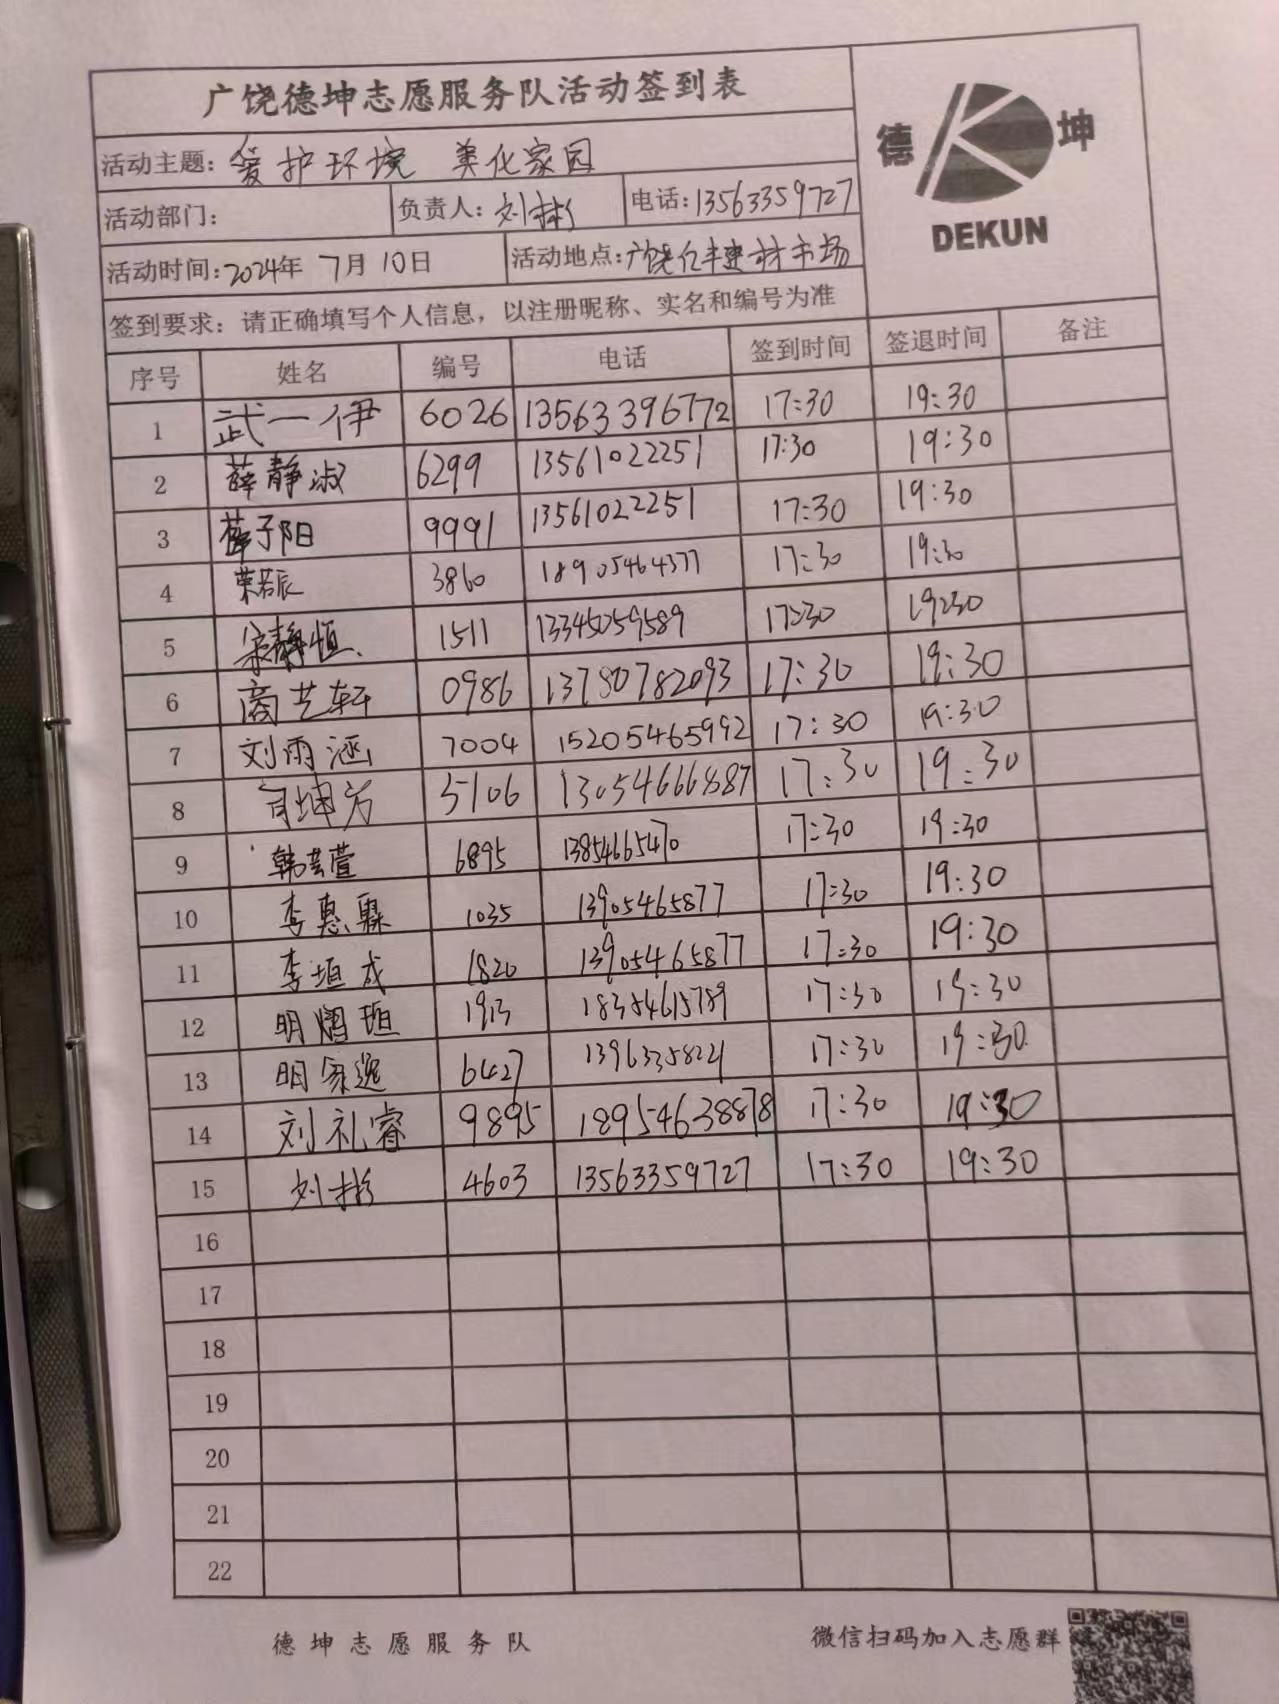 广饶德坤志愿服务队活动签到表
德 坤
DEKUN
活动主题：爱护环境 美化家园
活动部门： 负责人：刘彬 电话：13563359727
活动时间：2024年 7月 10日 活动地点：广饶亿丰建材市场
签到要求：请正确填写个人信息，以注册昵称、实名和编号为准
序号 姓名 编号 电话 签到时间 签退时间 备注
1 武一伊 6026 13563396772 17:30 19:30
2 薛静淑 6299 13561022251 17:30 19:30
3 薛子阳 9991 13561022251 17:30 19:30
4 荣若辰 3860 18905464377 17:30 19:30
5 宋静恒 1511 13345059589 17:30 19:30
6 商艺轩 0986 13780782093 17:30 19:30
7 刘雨涵 7004 15205465992 17:30 19:30
8 5106 13054666887 17:30 19:30
9 韩芸萱 6895 13854665470 17:30 19:30
10 李惠霖 1035 13905465877 17:30 19:30
11 李垣成 1820 13905465877 17:30 19:30
12 明熠垣 1913 18354615789 17:30 19:30
13 明家逸 6427 13963358221 17:30 19:30
14 刘礼睿 9895 18954638878 17:30 19:30
15 刘彬 4603 13563359727 17:30 19:30
16
17
18
19
20
21
22
德坤志愿服务队 微信扫码加入志愿群